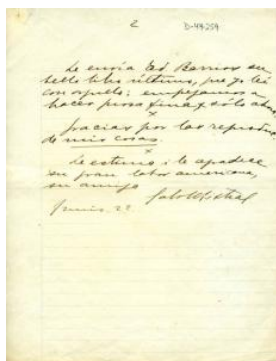 2 D-44254
Le envía Ed. Barrios su
bello libro último, que yo leí
con orgullo: empezamos a
hacer prosa fina y sólo ahora.
x
Gracias por las
de mis cosas.
x
Le estima i le agradece
su gran labor americana,
su amiga
Gab Mistral
Junio 22